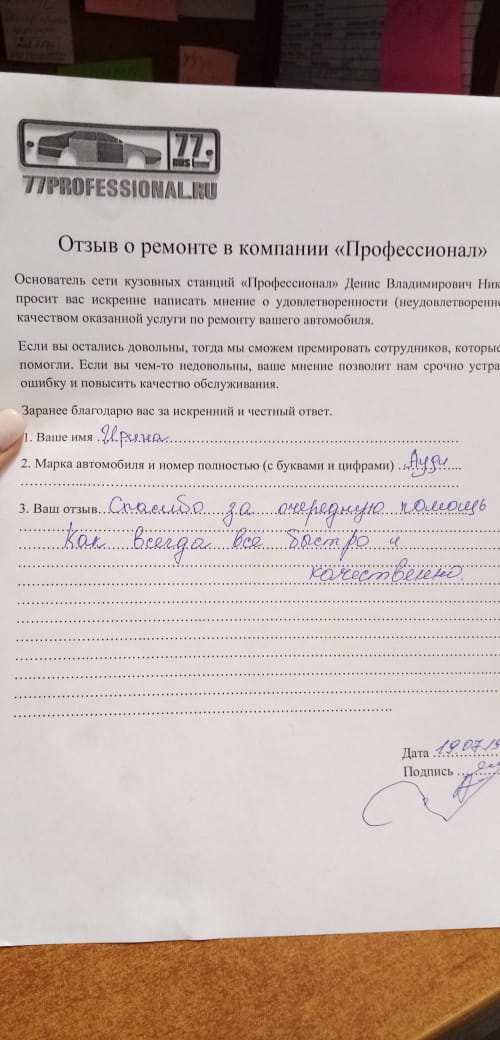 77
RUS
77PROFESSIONAL.RU
Отзыв о ремонте в компании «Профессионал»
Основатель сети кузовных станций «Профессионал» Денис Владимирович Ник
просит вас искренне написать мнение о удовлетворенности (неудовлетворенно
качеством оказанной услуги по ремонту вашего автомобиля.
Если вы остались довольны, тогда мы сможем премировать сотрудников, которые
помогли. Если вы чем-то недовольны, ваше мнение позволит нам срочно устра
ошибку и повысить качество обслуживания.
Заранее благодарю вас за искренний и честный ответ.
1. Ваше имя Ирина
2. Марка автомобиля и номер полностью (с буквами и цифрами) Ауди
3. Ваш отзыв Спасибо за очередную помощь
Как всегда все быстро и
качественно.
Дата 19.07.19
Подпись